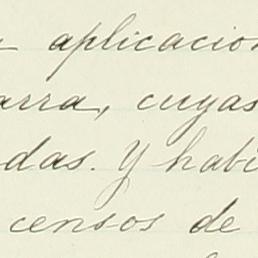 aplicacion
arra, cuyas
das. Y habi
censos de